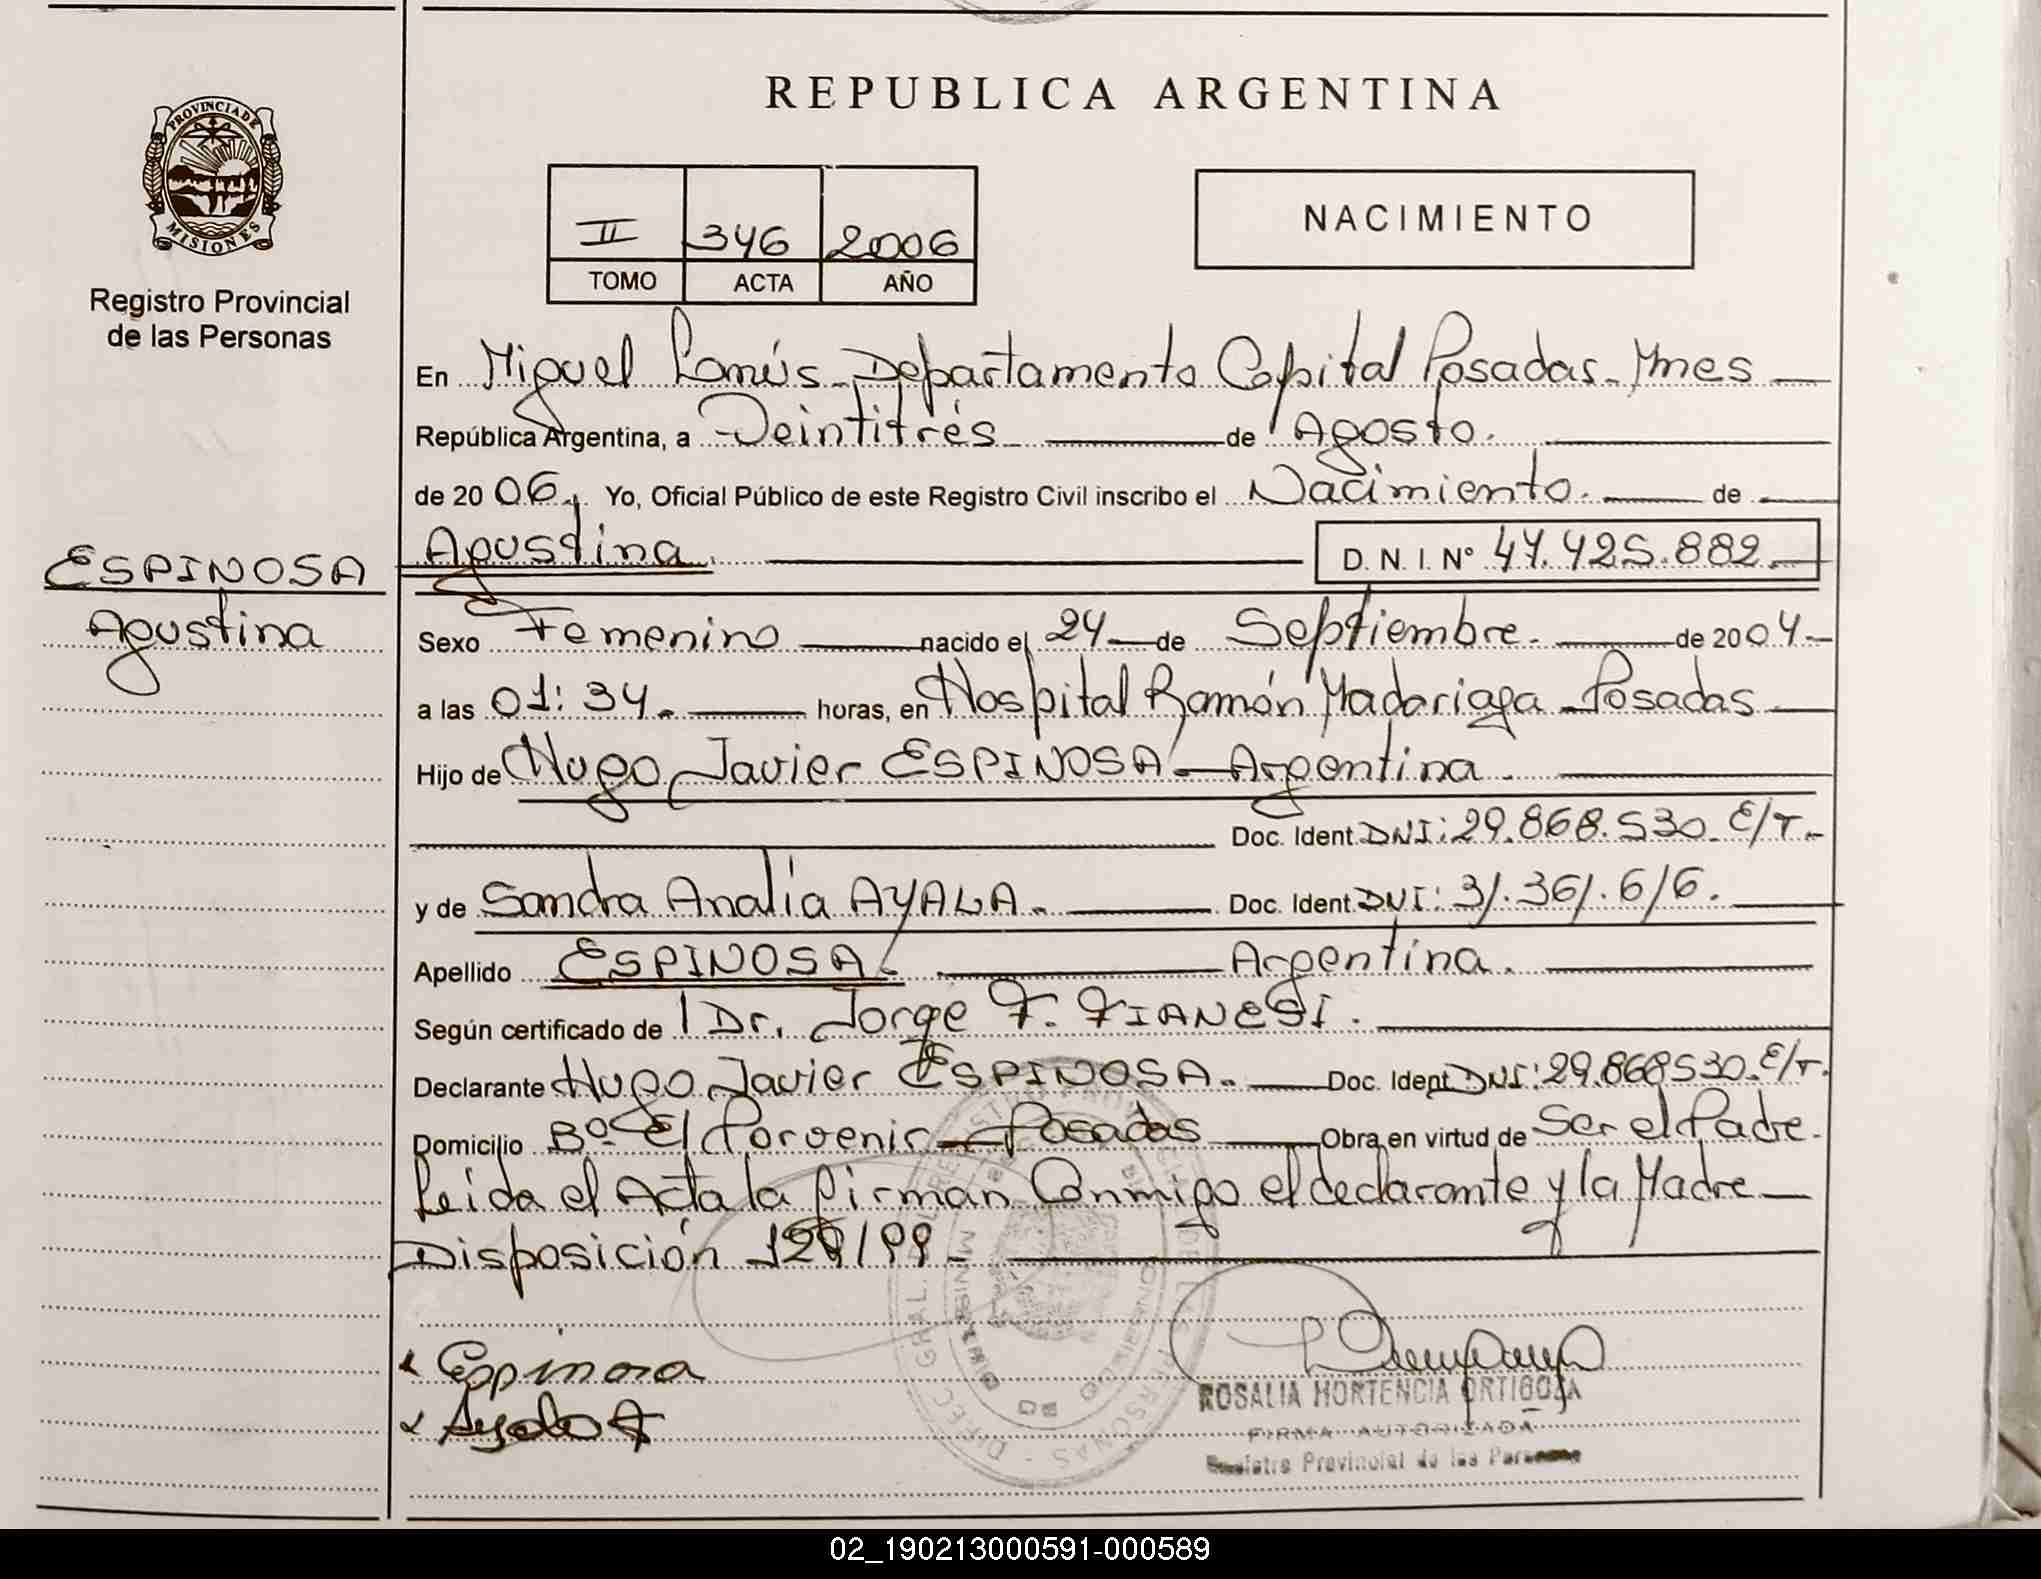 REPUBLICA ARGENTINA
PROVINCIA DE MISIONES
Registro Provincial
de las Personas
II 346 2006
TOMO ACTA AÑO
NACIMIENTO
En Miguel Lanús - Departamento Capital Posadas - Mnes
República Argentina, a Veintitrés de Agosto.
de 20 06, Yo, Oficial Público de este Registro Civil inscribo el Nacimiento. de
ESPINOSA
Agustina
Agustina. D. N. I. Nº 47.425.882.
Sexo Femenino nacido el 24 de Septiembre. de 20 04.
a las 01:34. horas, en Hospital Ramón Madariaga - Posadas
Hijo de Hugo Javier ESPINOSA - Argentina
Doc. Ident. DNI: 29.868.530. E/T.
y de Sandra Analía AYALA. Doc. Ident. DNI: 31.361.616.
Apellido ESPINOSA Argentina.
Según certificado de Dr. Jorge F. FIANESI.
Declarante Hugo Javier ESPINOSA. Doc. Ident. DNI: 29.868530. E/T.
Domicilio Bº El Porvenir - Posadas Obra en virtud de Ser el Padre.
Leida el Acta la firman Conmigo el declarante y la Madre
Disposición /99
Espinosa
Ayala A
ROSALIA HORTENCIA ORTIGOZA
FIRMA AUTORIZADA
Registro Provincial de las Personas
02_190213000591-000589